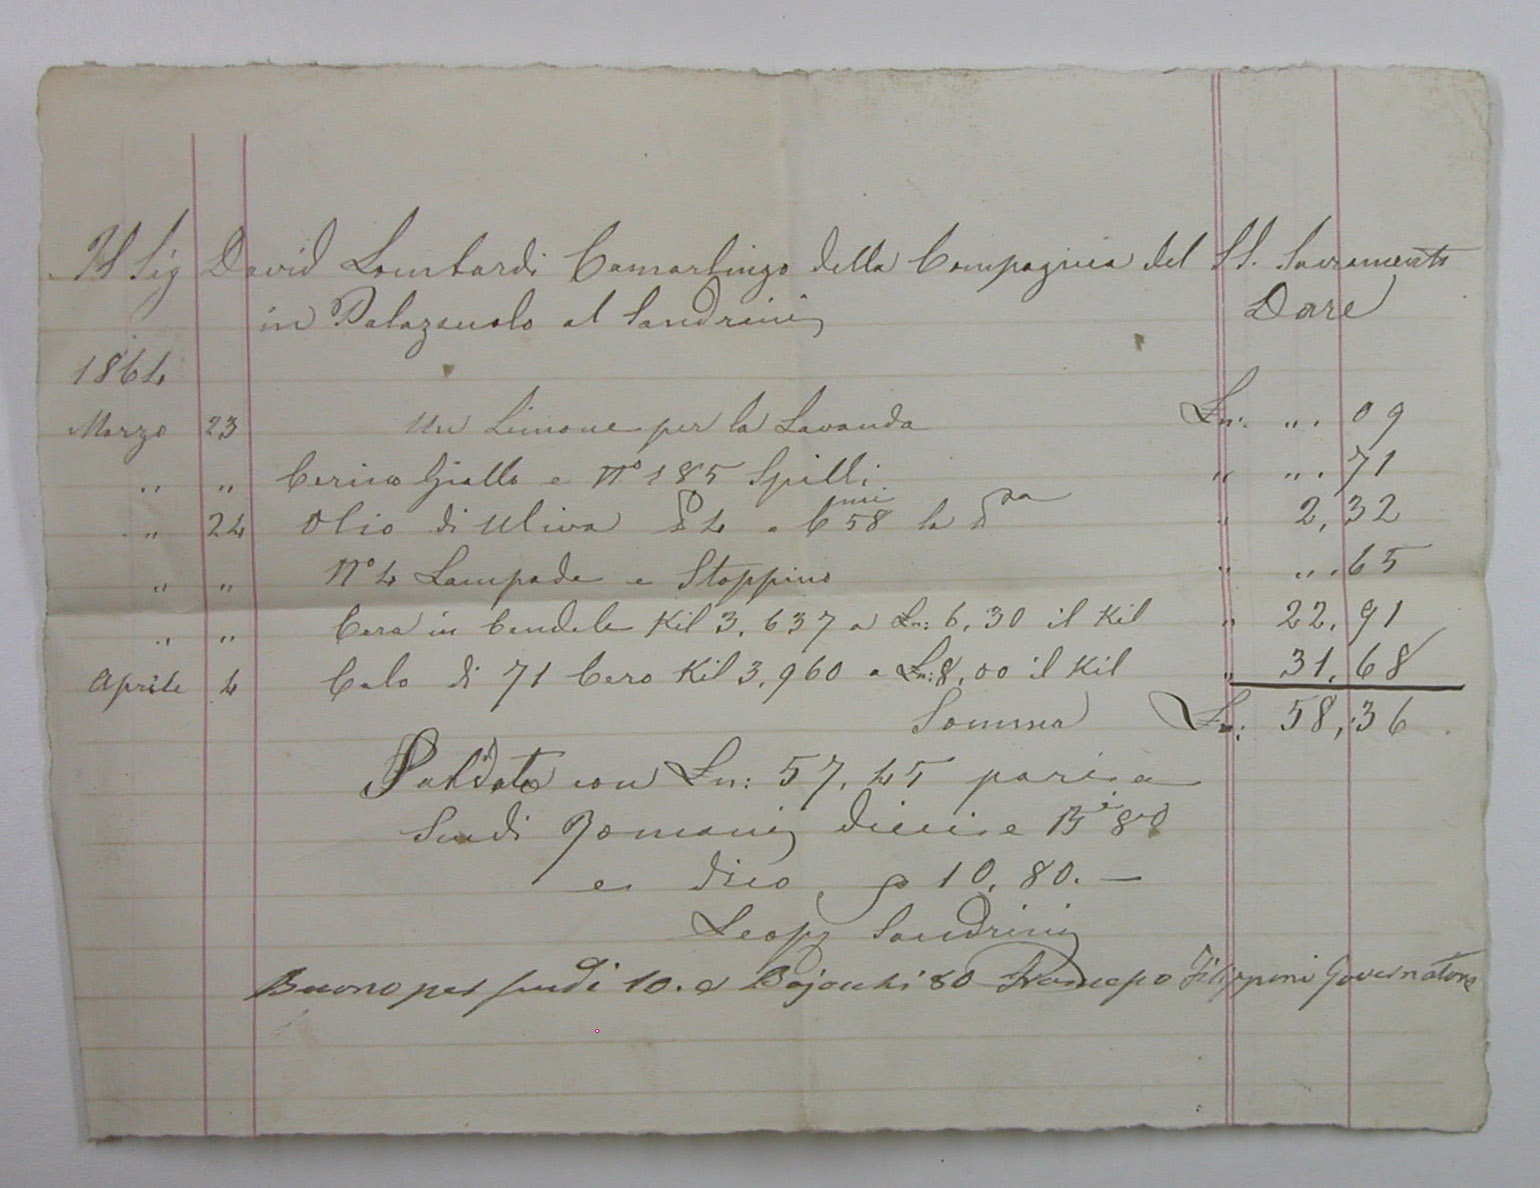 Il Sig David Lombardi Camarlingo della Compagnia del SS. Sacramento
in Palazzuolo al Sandrini Dare
1864
Marzo 23 Un Limone per la Lavanda Ln: „. 09
„ „ Cerino Giallo e N° 185 Spilli „ „. 71
„ 24 Olio di Uliva 4 a Cmi 58 la „ 2,32
„ „ N° 4 Lampade e Stoppino „ „. 65
„ „ Cera in Candele Kil 3,637 a Ln: 6,30 il Kil „ 22,91
Aprile 4 Calo di 71 Cero Kil 3,960 a Ln: 8,00 il Kil „ 31,68
Somma Ln: 58,36
Saldato con Ln: 57,45 pari a
Scudi Romani dieci e Bi 80
e dico 10,80.—
Leopo Sandrini
Buono per scudi 10. e Bajocchi 80 Francesco Filipponi Governatore